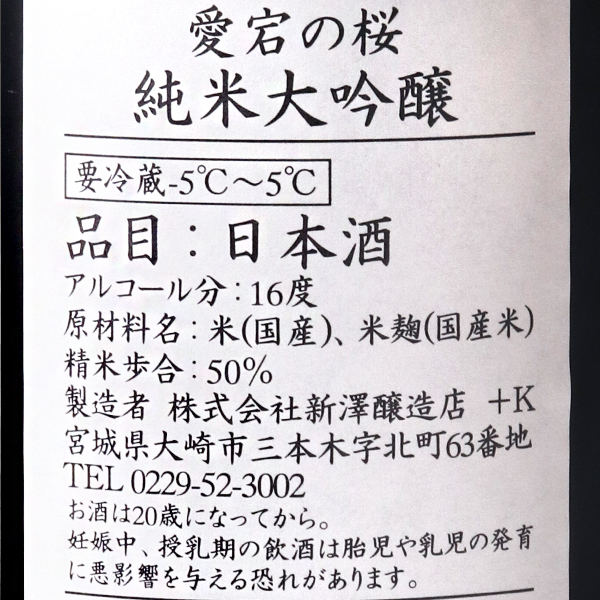 愛宕の桜
純米大吟醸
要冷蔵-5℃～5℃
品目：日本酒
アルコール分：16度
原材料名：米(国産)、米麹(国産米)
精米歩合：50%
製造者 株式会社新澤醸造店 +K
宮城県大崎市三本木字北町63番地
TEL 0229-52-3002
お酒は20歳になってから。
妊娠中、授乳期の飲酒は胎児や乳児の発育
に悪影響を与える恐れがあります。